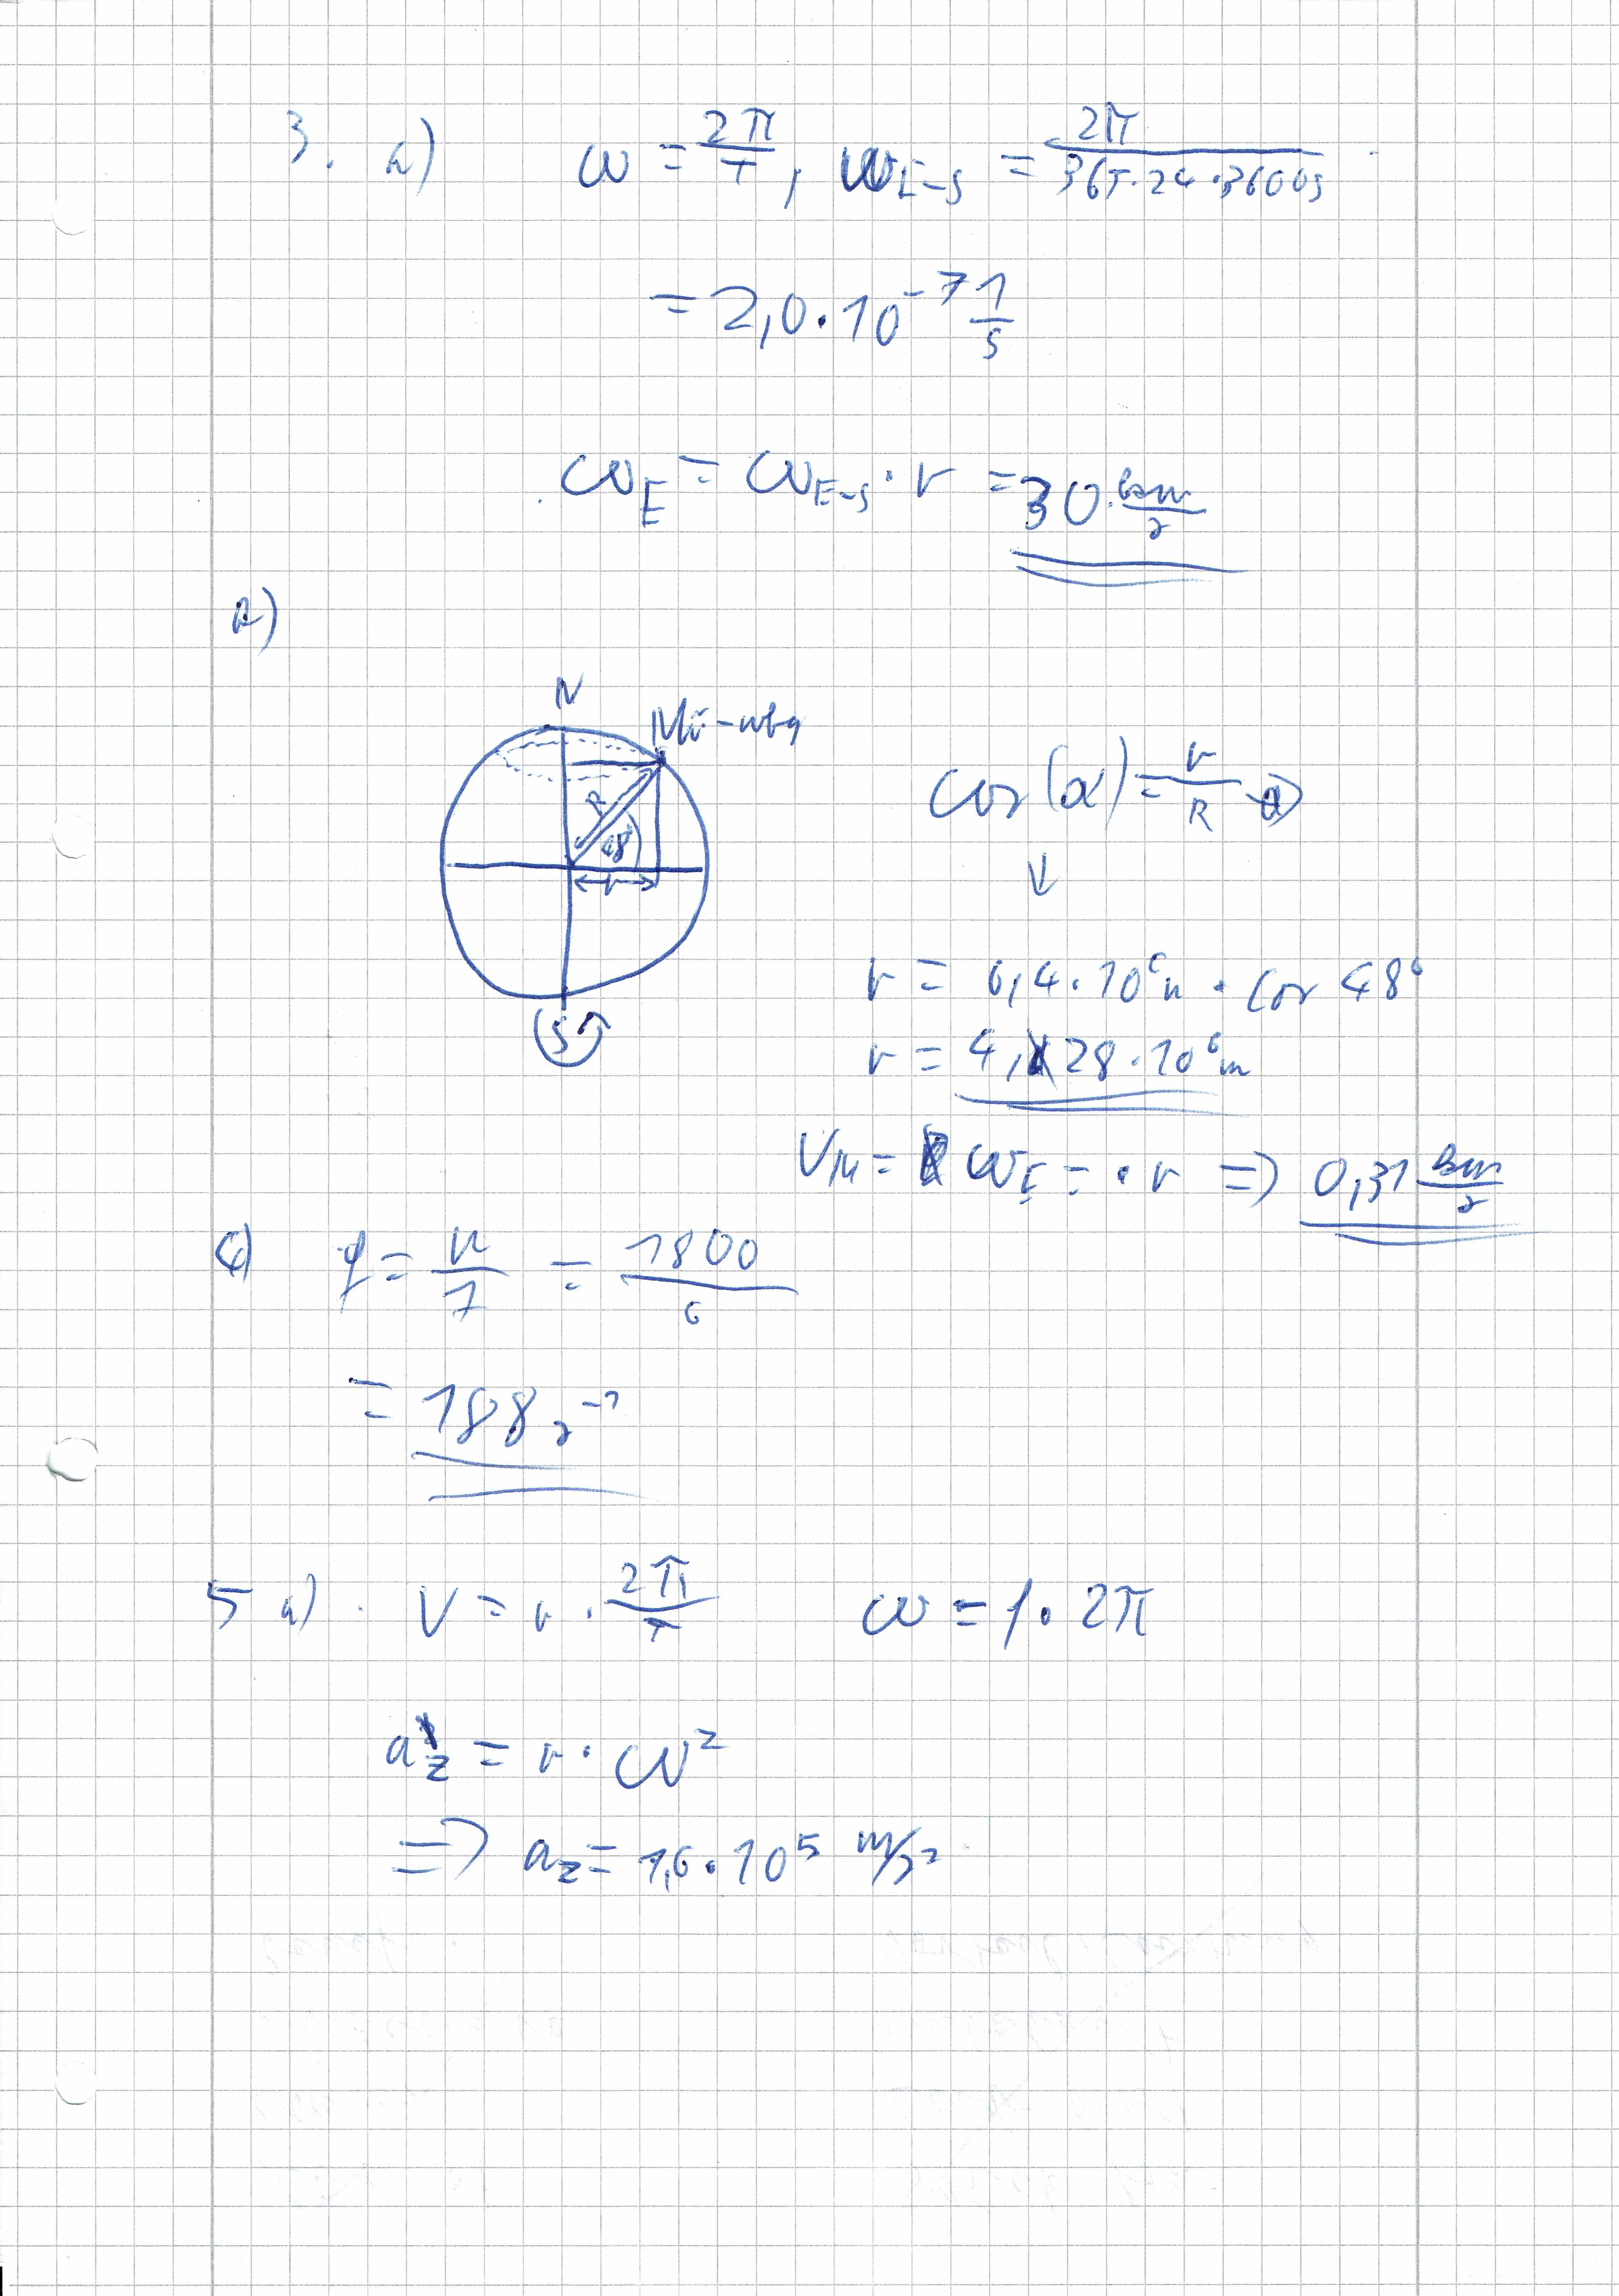 3. a) ω = 2π/T, ω_E-S = 2π/365·24·3600s
= 2,0·10⁻⁷ 1/s
ω_E = ω_E-S · r = 30 km/s
N
R
48°
r
S
cos(α) = r/R
↓
r = 6,4·10⁶m · cos 48°
r = 4,28·10⁶m
V_M = ω_E = · r => 0,31 km/s
= 1800/6
= 188 s⁻¹
5 a) V = r · 2π/T ω = f · 2π
a_z = r · ω²
=> a_z = 1,6·10⁵ m/s²